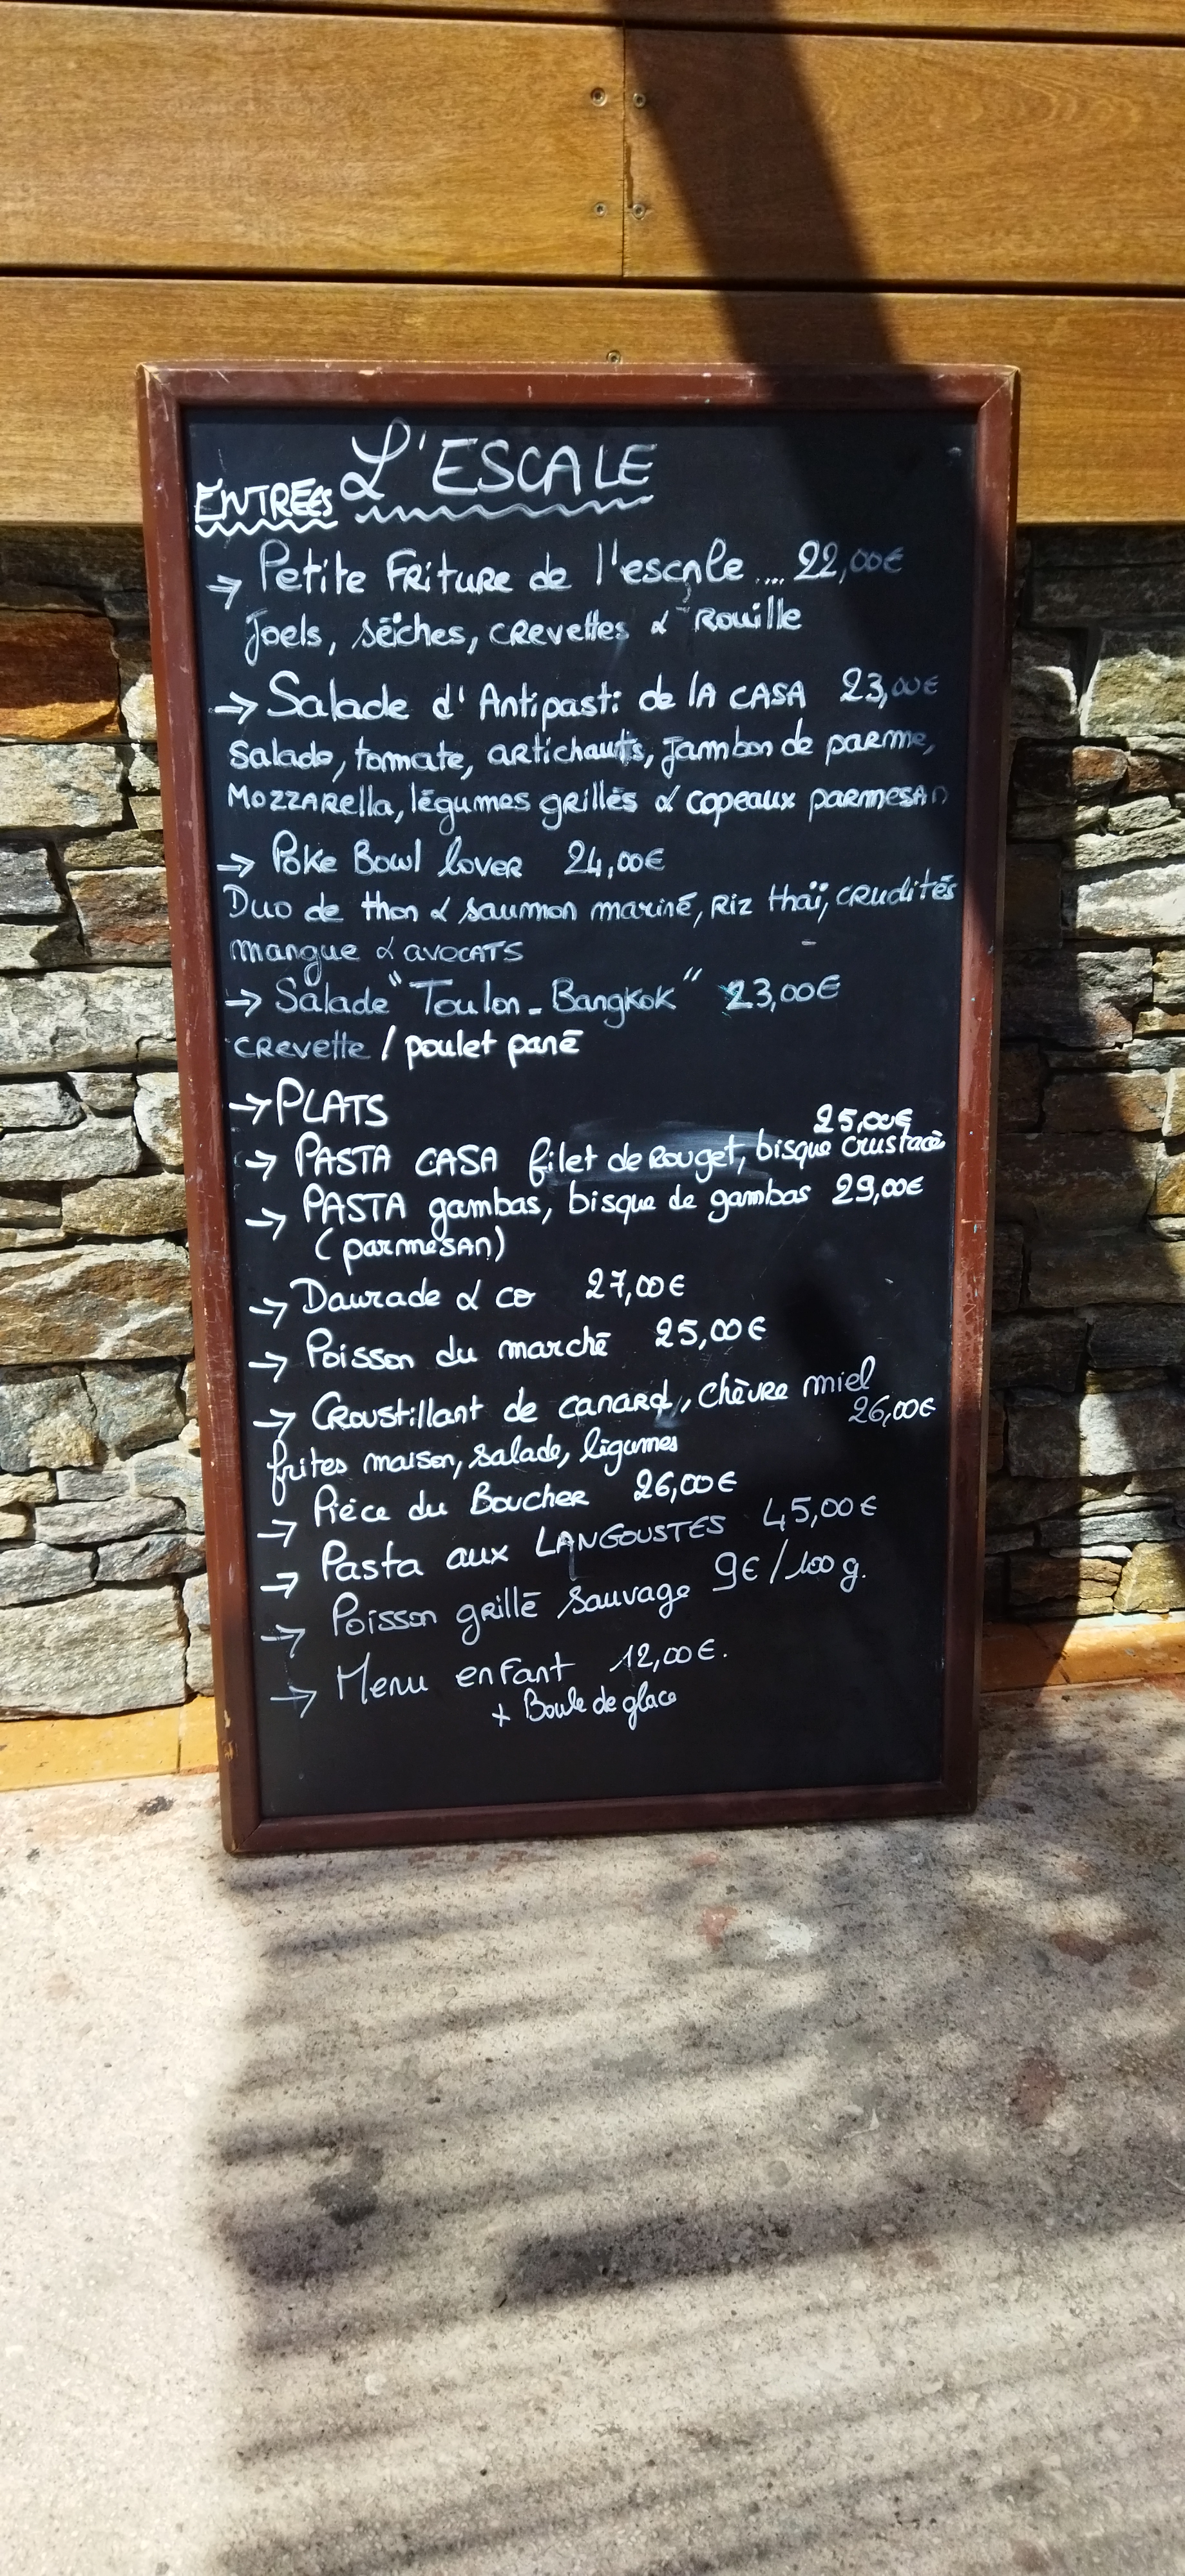 L'ESCALE
ENTREES
→ Petite Friture de l'escale .... 22,00€
Joels, sëiches, crevettes & Rouille
→ Salade d'Antipasti de la CASA 23,00€
Salade, tomate, artichauts, jambon de parme,
Mozzarella, légumes grillés & copeaux parmesan
→ Poke Bowl lover 24,00€
Duo de thon & saumon mariné, Riz thaï, crudités
mangue & avocats
→ Salade "Toulon - Bangkok" 23,00€
crevette / poulet pané
→ PLATS
25,00€
→ PASTA CASA filet de Rouget, bisque crustacé
→ PASTA gambas, bisque de gambas 29,00€
(parmesan)
→ Daurade & co 27,00€
→ Poisson du marché 25,00€
→ Croustillant de canard, chèvre miel
26,00€
frites maison, salade, légumes
→ Piéce du Boucher 26,00€
→ Pasta aux LANGOUSTES 45,00€
→ Poisson grillé sauvage 9€/100 g.
→ Menu enfant 12,00€.
+ Boule de glace